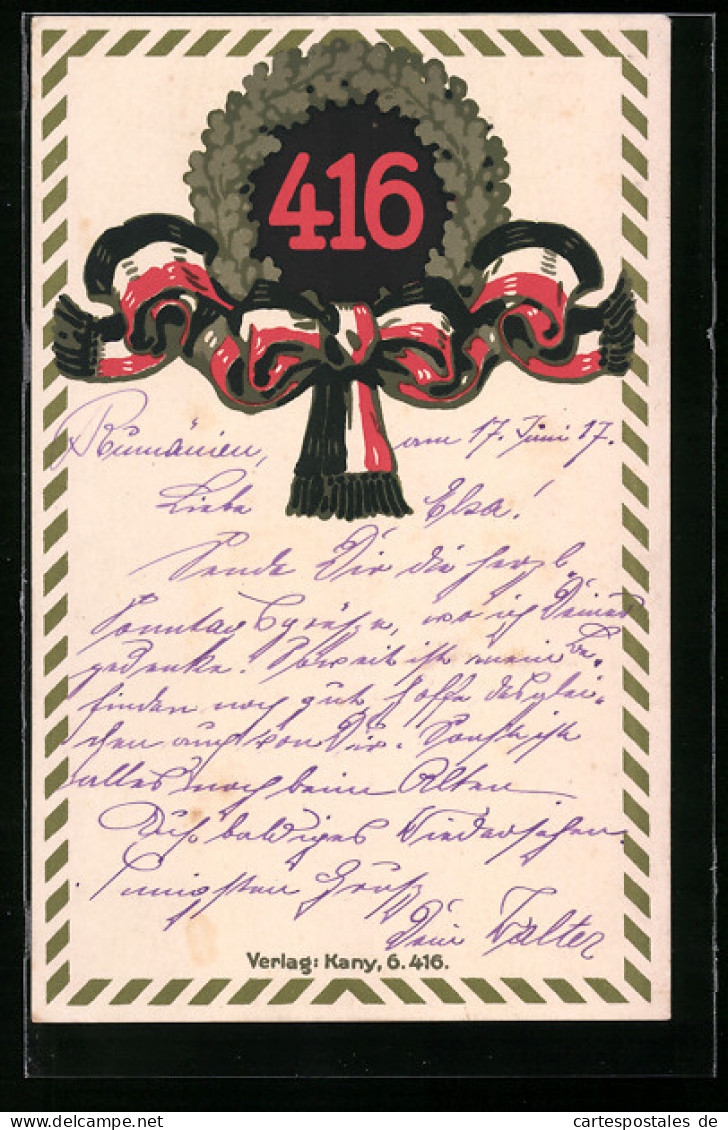 416
Rumänien, am 17. Juni 17.
Liebe Elsa!
Sende Dir die herzl.
Sonntagsgrüße, wo ich Deiner
gedenke. Soweit ist mein Be-
finden noch gut, hoffe desglei-
chen auch von Dir. Sonst ist
alles noch beim Alten
Auf baldiges Wiedersehen.
Innigsten Gruß
Dein Walter
Verlag: Kany, 6. 416.
www.delcampe.net
cartespostales de